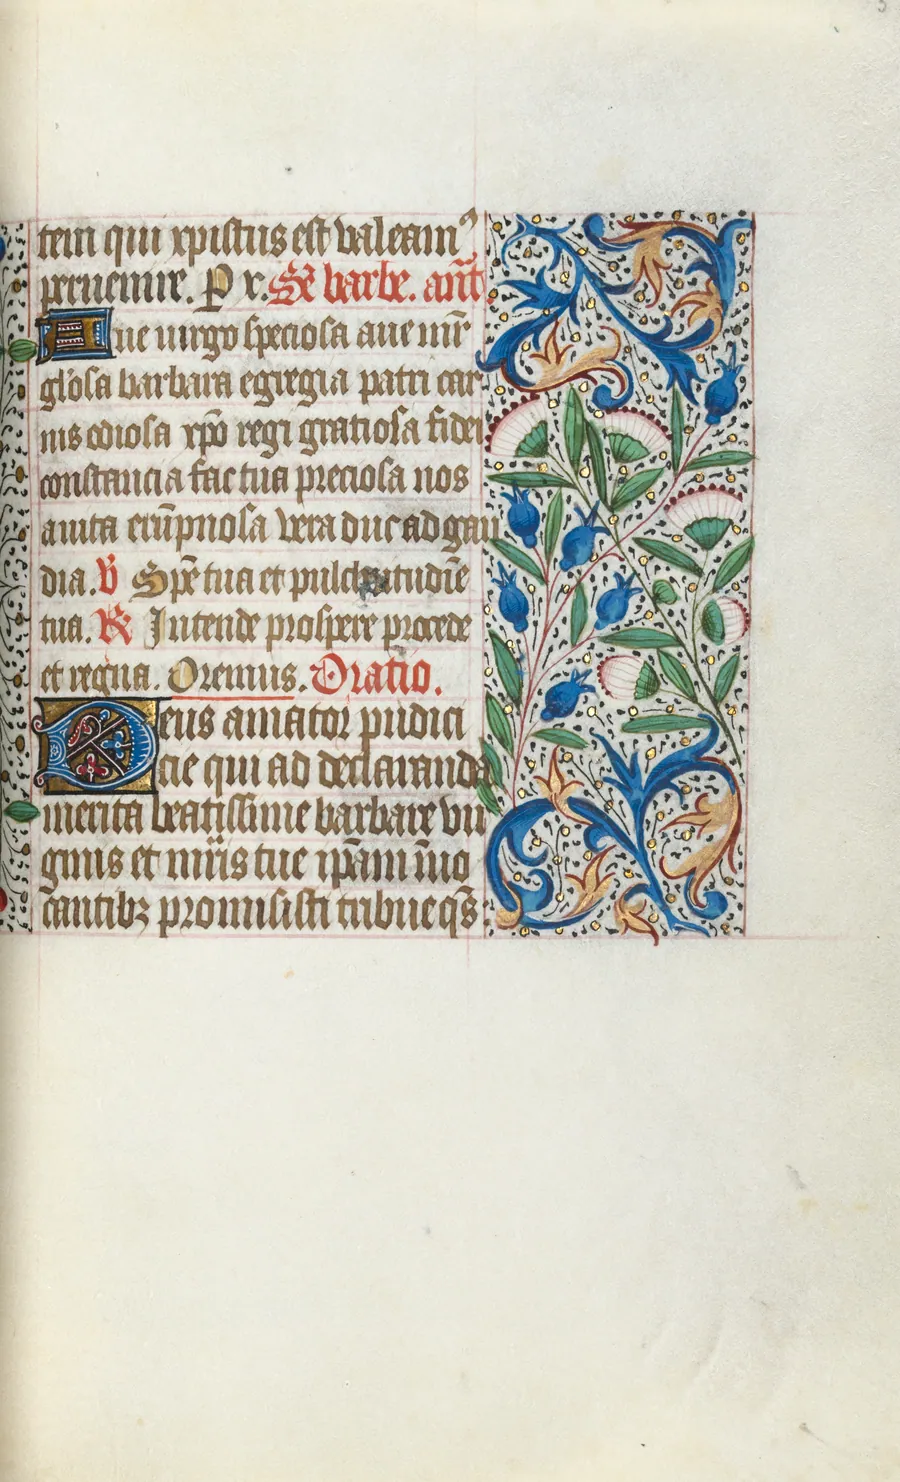 tem qui xpistus est valeam9
peruenire. P x. Sce barbe. añt.
Aue uirgo speciosa aue mr̄
glosa barbara egregia patri car
nis odiosa xpō regi gratiosa fidei
constancia fac tua preciosa nos
a uita erūpnosa vera duc ad gau
dia. V Spē tua et pulchritudīe
tua. R Intende prospere procede
et regna. Oremus. Oratio.
Deus amator pudici
cie qui ad declaranda
merita beatissime barbare vir
ginis et mr̄is tue ip̄am īuo
cantibꝫ promisisti tribue qs̄: